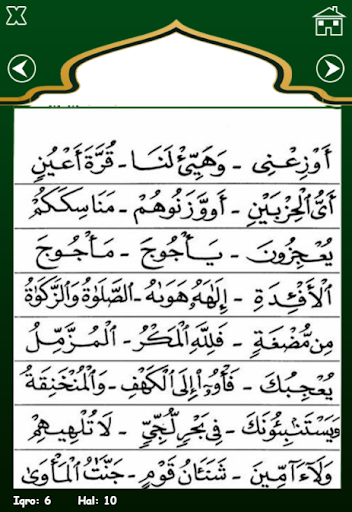 أَوْزِعْنِى - وَهَيِّئْ لَنَا - قُرَّةَ أَعْيُنٍ
أَىُّ الْحِزْبَيْنِ - أَووَّزَنُوهُمْ - مَنَاسِكَكُمْ
يُعْجِزُونَ - يَأْجُوجَ - مَأْجُوجَ
الْأَفْئِدَةِ - إِلٰهَهُ هَوَىٰهُ - الصَّلَوٰةُ وَالزَّكَوٰةُ
مِن مُّضْغَةٍ - فَلِلّٰهِ الْمَكْرُ - الْمُزَّمِّلُ
يُعْجِبُكَ - فَأْوُۥٓا إِلَى الْكَهْفِ - وَالْمُنْخَنِقَةُ
وَيَسْتَنْبِئُونَكَ - فِى بَحْرٍ لُّجِّيٍّ - لَا تُلْهِيهِمْ
وَلَآ ءَآمِّينَ - شَنَـَٔانُ قَوْمٍ - جَنَّٰتُ الْمَأْوَىٰ
Iqro: 6 Hal: 10